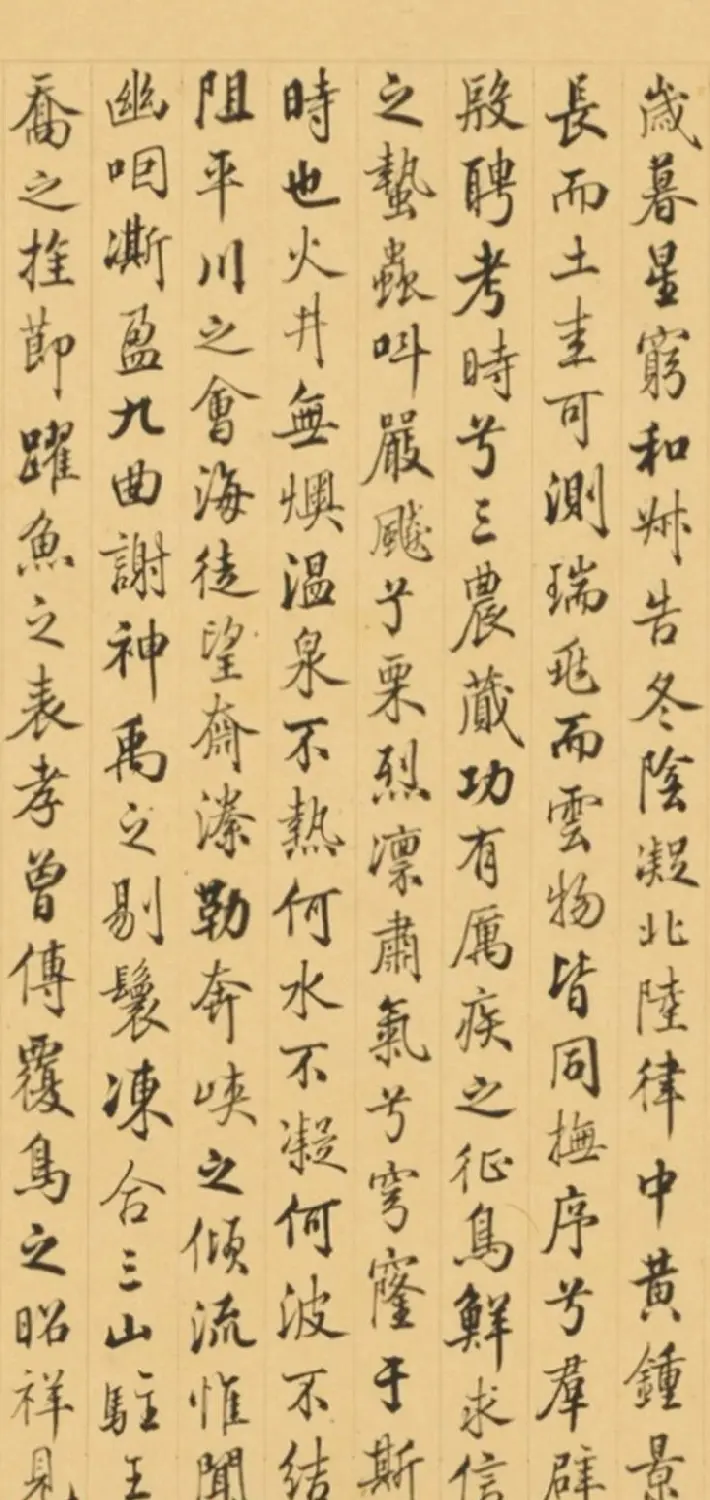 歲暮星窮和叔告冬陰凝北陸律中黃鍾景
長而土圭可測瑞兆而雲物皆同撫序兮群辟
殷聘考時兮三農蕆功有厲疾之征鳥鮮求信
之蟄蟲叫嚴飈兮栗烈凛肅氣兮穹窿于斯
時也火井無燠温泉不熱何水不凝何波不結
阻平川之會海徒望齊漆勒奔峽之傾流惟聞
幽咽凘盈九曲謝神禹之剔鬟凍合三山駐王
喬之拴節躍魚之表孝曾傳覆鳥之昭祥見